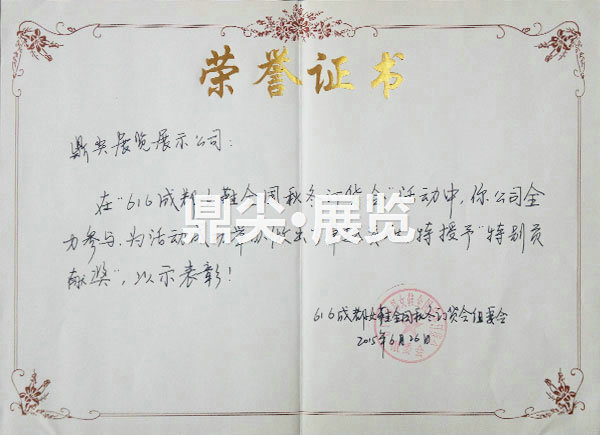 荣誉证书
鼎尖展览展示公司:
在"616成都女鞋全国秋冬订货会"活动中,你公司全
力参与,为活动成功举办做出了 特授予"特别贡
献奖",以示表彰!
鼎尖·展览
616成都女鞋全国秋冬订货会组委会
2015年6月26日